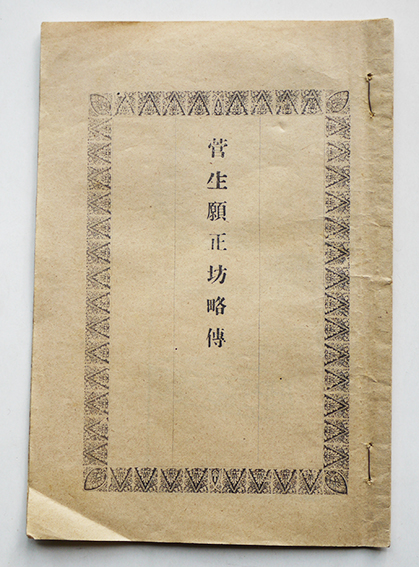 菅生願正坊略傳